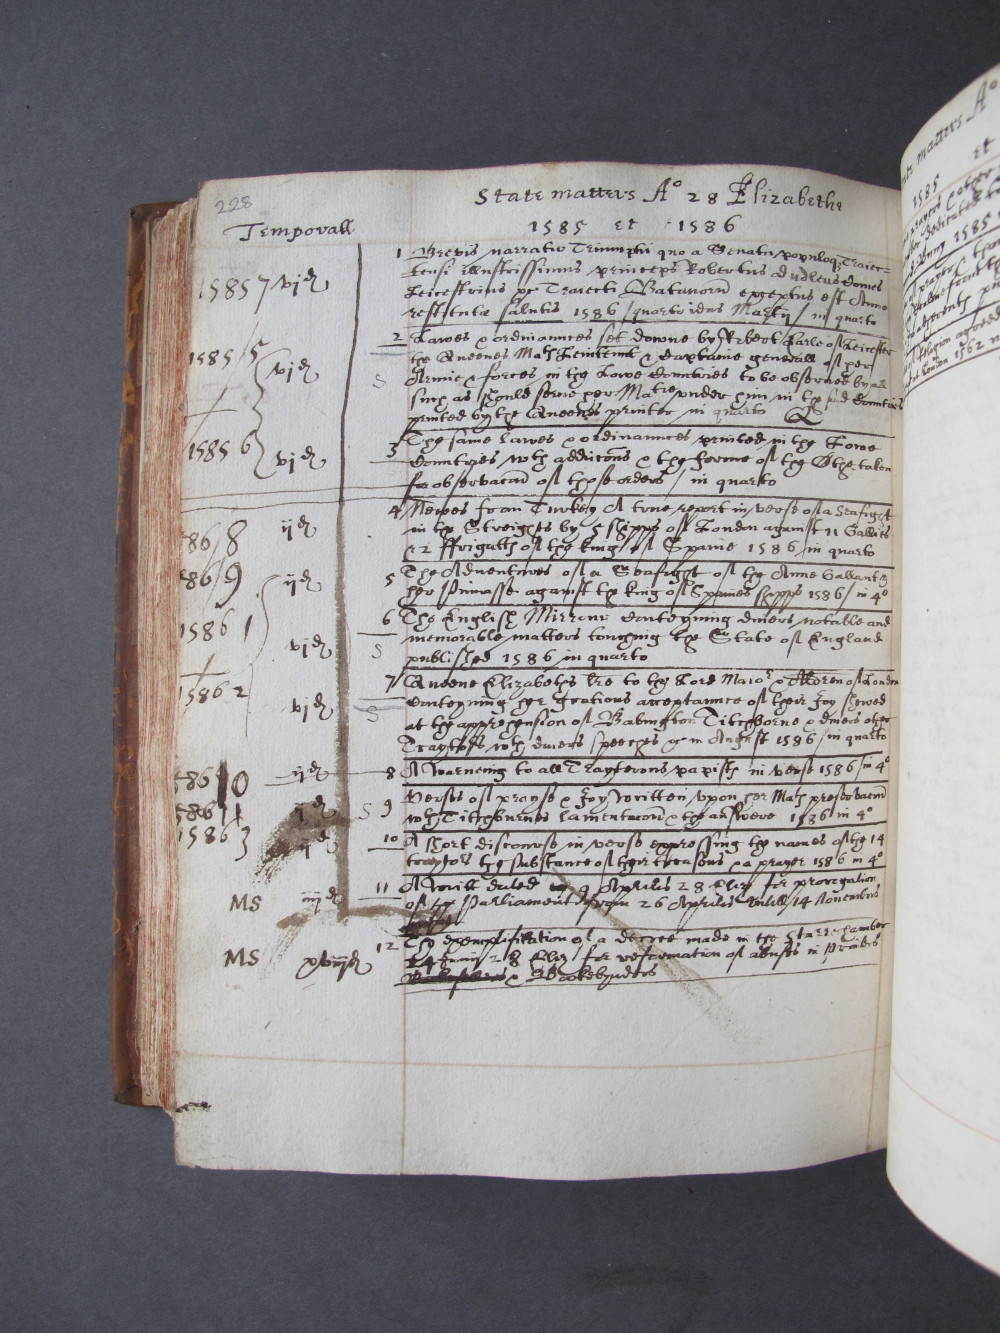 228
State matters Ao 28 Elizabethe
Temporall
1585 et 1586
1585 7 vjd 1 Brevis narratio Triumphi quo a Senatu populoq; Traiec=
tensi illustrissimus princeps Robertus Dudleus Comes
Leicestrius Traiecti Batavorum exceptus est Anno
restitutae salutis 1586 / quarto idus Martij / in quarto
1585 / 5 vjd 2 Lawes & ordinances set downe by Robert Earle of Leicester
the Queenes Mats Leiutennt & Captaine generall of her
S Armie & forces in the Lowe Countries to be observed by all
such as should serve her Matie under him in the sd Countries
printed by the Queenes printer in quarto
1585 6 vjd 3 The same Lawes & ordinannces printed in the Lowe
Countries wth addicons & the forme of the Othe taken
for observacon of those orders / in quarto
86 / 8 ijd 4 Newes from Turkey A true report in verse of a Seafight
in the Streights by 5 shipps of London against 11 Gallies
& 2 ffrigatts of the King of Spaine 1586 / in quarto
86 / 9 ijd 5 The Adventures of a Seafight of the Anne Gallant &
her Pinnasse against the King of Spaines shipps 1586 / in 4o
1586 1 vjd 6 The English Mirrour conteyning divers notable and
S memorable matters touching the State of England
published 1586 in quarto
1586 2 vjd 7 Queene Elizabeths Lre to the Lord Maior & Alderen of London
S conteyning her gratious acceptance of their Joy shewed
at the apprehension of Babington Titchborne & divers other
Traytors wth divers speeches & in August 1586 / in quarto
586 10 ijd 8 A warneing to all Trayterous papists in verse 1586 / in 4o
586 11 ijd S 9 Verses of prayse & Joy written upon her Mats preservacon
wth Titchburnes lamentacon & the answere 1586 in 4o
1586 3 10 A short discourse in verse expressing the names of the 14
traytors the substance of their treasons & a prayer 1586 in 4o
MS iiijd 11 A Writt dated 9 Aprilis 28 Eliz for prorogation
of the Parliament from 26 Aprilis untill 14 Novembris
MS xviijd 12 The exemplification of a decree made in the Starrechamber
28 Eliz for reformation of abuses in Printers
& Bookebynders
State matters Ao
et
1585
1585